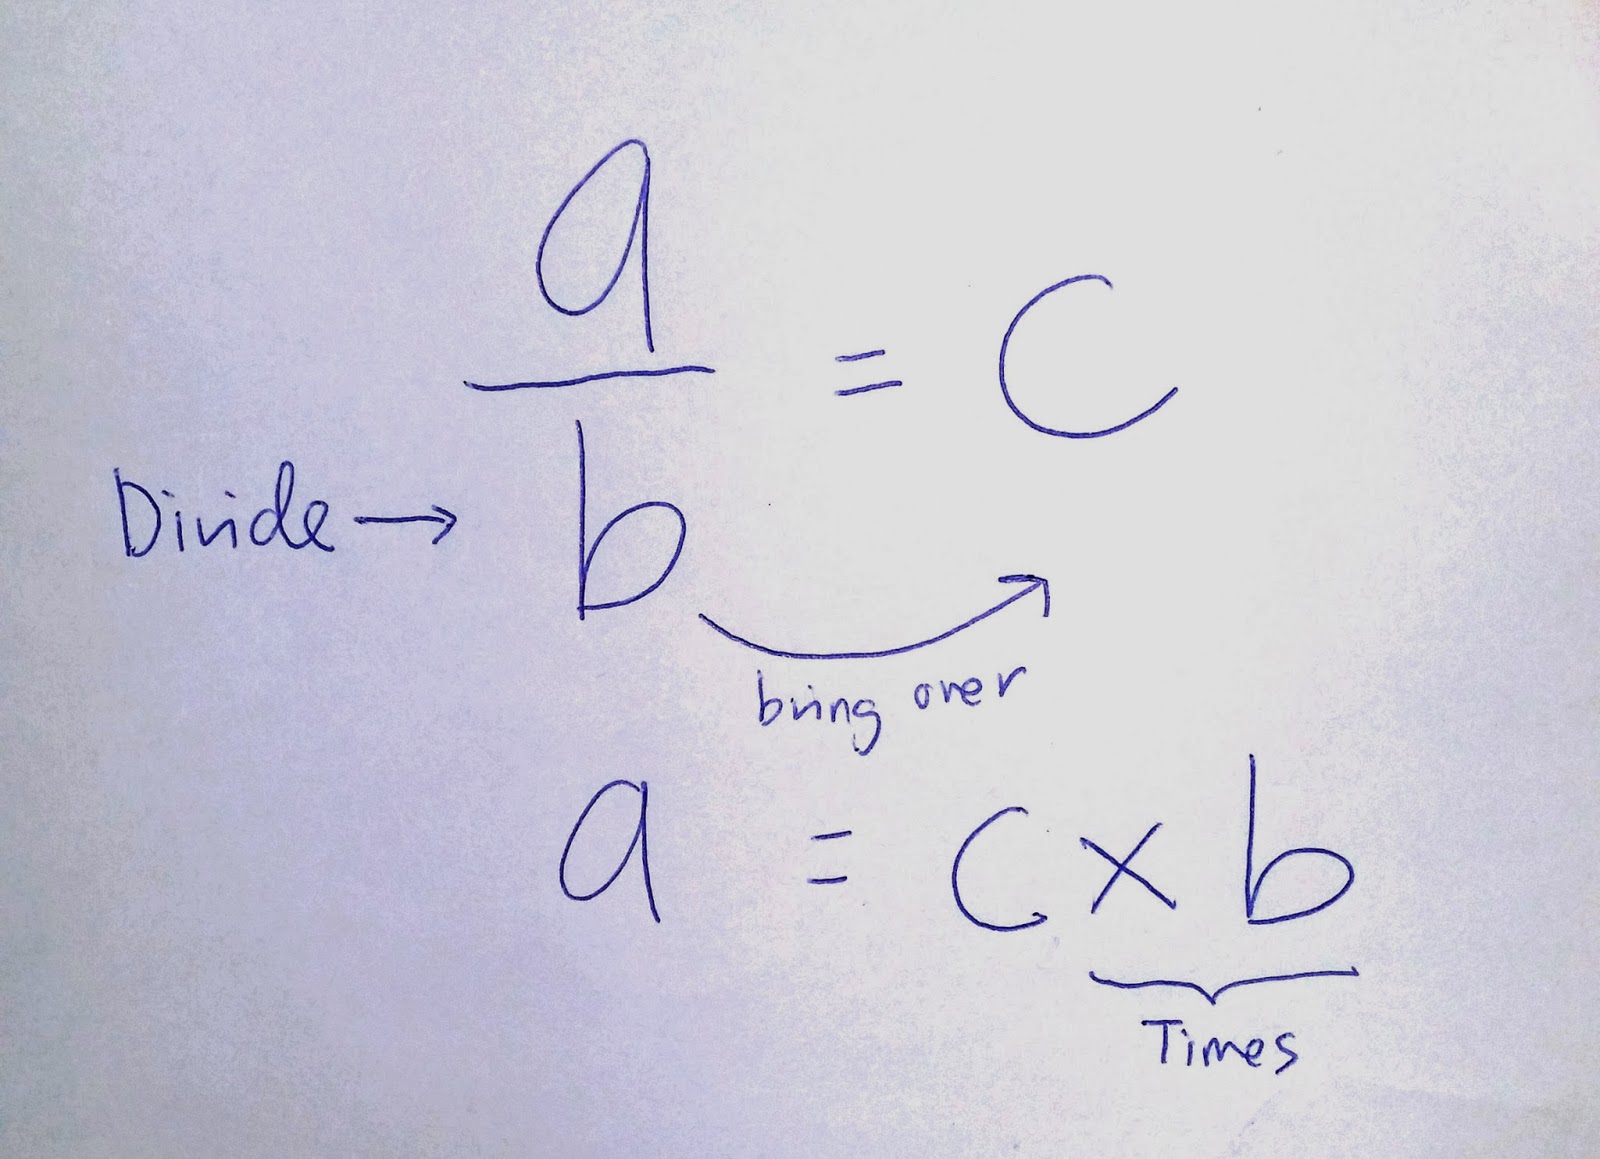 a
— = C
Divide → b
bring over
a = c × b
Times